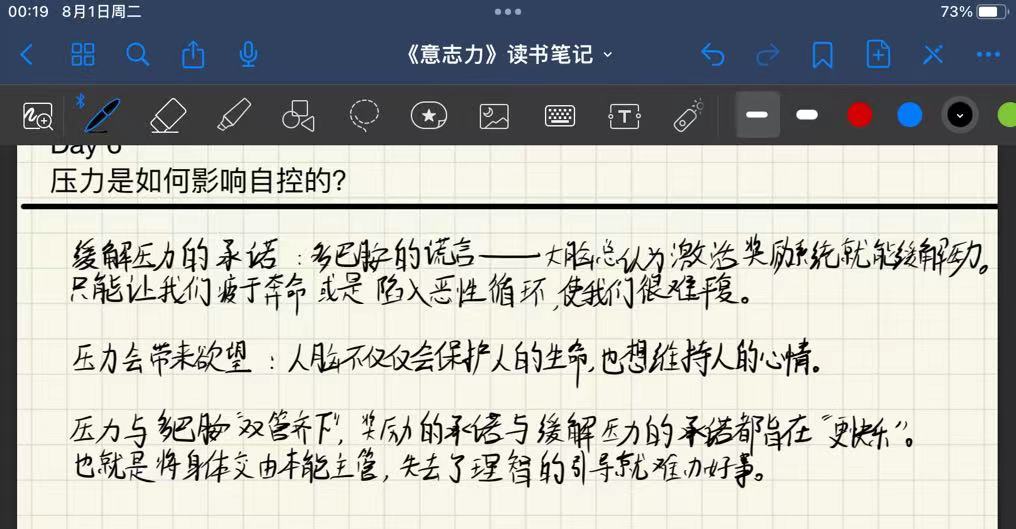 00:19 8月1日周二
73%
《意志力》读书笔记
T
Day 6
压力是如何影响自控的?
缓解压力的承诺：多巴胺的谎言——大脑总认为激活奖励系统就能缓解压力。
只能让我们疲于奔命或是陷入恶性循环,使我们很难平复。
压力会带来欲望：人脑不仅仅会保护人的生命,也想维持人的心情。
压力与多巴胺“双管齐下”,奖励的承诺与缓解压力的承诺都旨在“更快乐”。
也就是将身体交由本能主管,失去了理智的引导就难办好事。